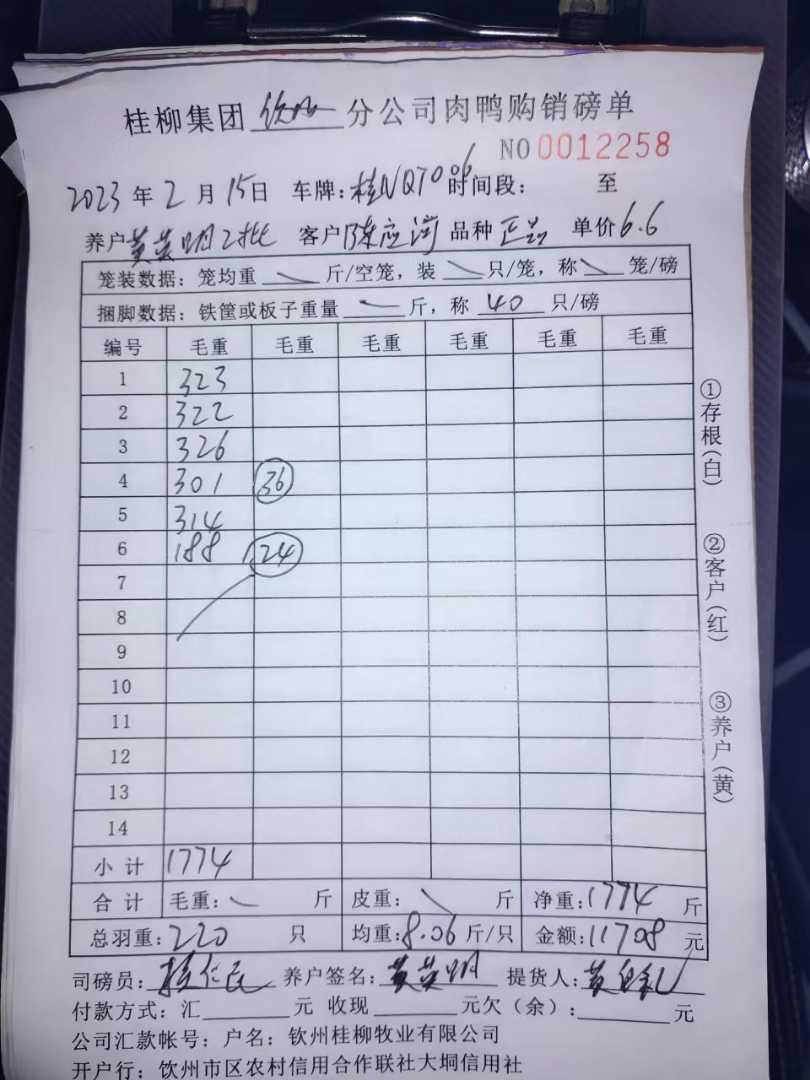 桂柳集团 钦州 分公司肉鸭购销磅单
NO 0012258
2023年2月15日 车牌:桂NQT006 时间段: 至
养户黄英明2批 客户陈应 品种正品 单价6.6
笼装数据:笼均重 斤/空笼,装 只/笼,称 笼/磅
捆脚数据:铁筐或板子重量 斤,称 40 只/磅
编号 毛重 毛重 毛重 毛重 毛重 毛重
1 323
2 322
3 326
4 301 36
5 314
6 188 24
7
8
9
10
11
12
13
14
小计 1774
合计 毛重: 斤 皮重: 斤 净重:1774 斤
总羽重:220 只 均重:8.06斤/只 金额:11708元
司磅员: 养户签名:黄英明 提货人:黄
付款方式:汇 元 收现 元欠(余): 元
公司汇款帐号:户名:钦州桂柳牧业有限公司
开户行:钦州市区农村信用合作联社大垌信用社
①存根(白)
②客户(红)
③养户(黄)